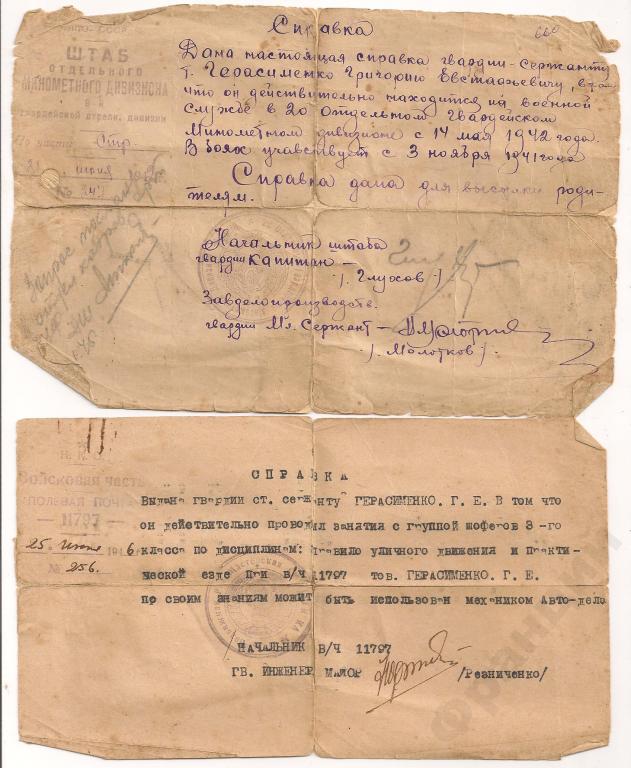 Справка
ШТАБ
ОТДЕЛЬНОГО
МИНОМЕТНОГО ДИВИЗИОНА
гвардейской стрелк. дивизии
Стр.
21 июня
№ 347
Дана настоящая справка гвардии-Сержанту
т. Герасименко Григорию Евстафьевичу, в том
что он действительно находится на военной
службе в 20 отдельном Гвардейском
Минометном дивизионе с 14 мая 1942 года.
В боях учавствует с 3 ноября 1941 года
Справка дана для высылки роди-
телям.
Начальник штаба
гвардии Капитан –
/. Глухов /.
Завделопроизводств.
гвардии Мл. Сержант –
/. Молотков /.
Войсковая часть
ПОЛЕВАЯ ПОЧТА
— 11797 —
25 Июня 194 6
№ 256.
СПРАВКА
Выдана гвардии ст. сержанту ГЕРАСИМЕНКО. Г. Е. В том что
он действительно проводил занятия с группой шоферов 3-го
класса по дисциплинам: правило уличного движения и практи-
ческой езде при в/ч 11797 тов. ГЕРАСИМЕНКО. Г. Е.
по своим знаниямможит быть использован механиком Авто-дело
НАЧАЛЬНИК В/Ч 11797
ГВ. ИНЖЕНЕР МАЙОР /Резниченко/